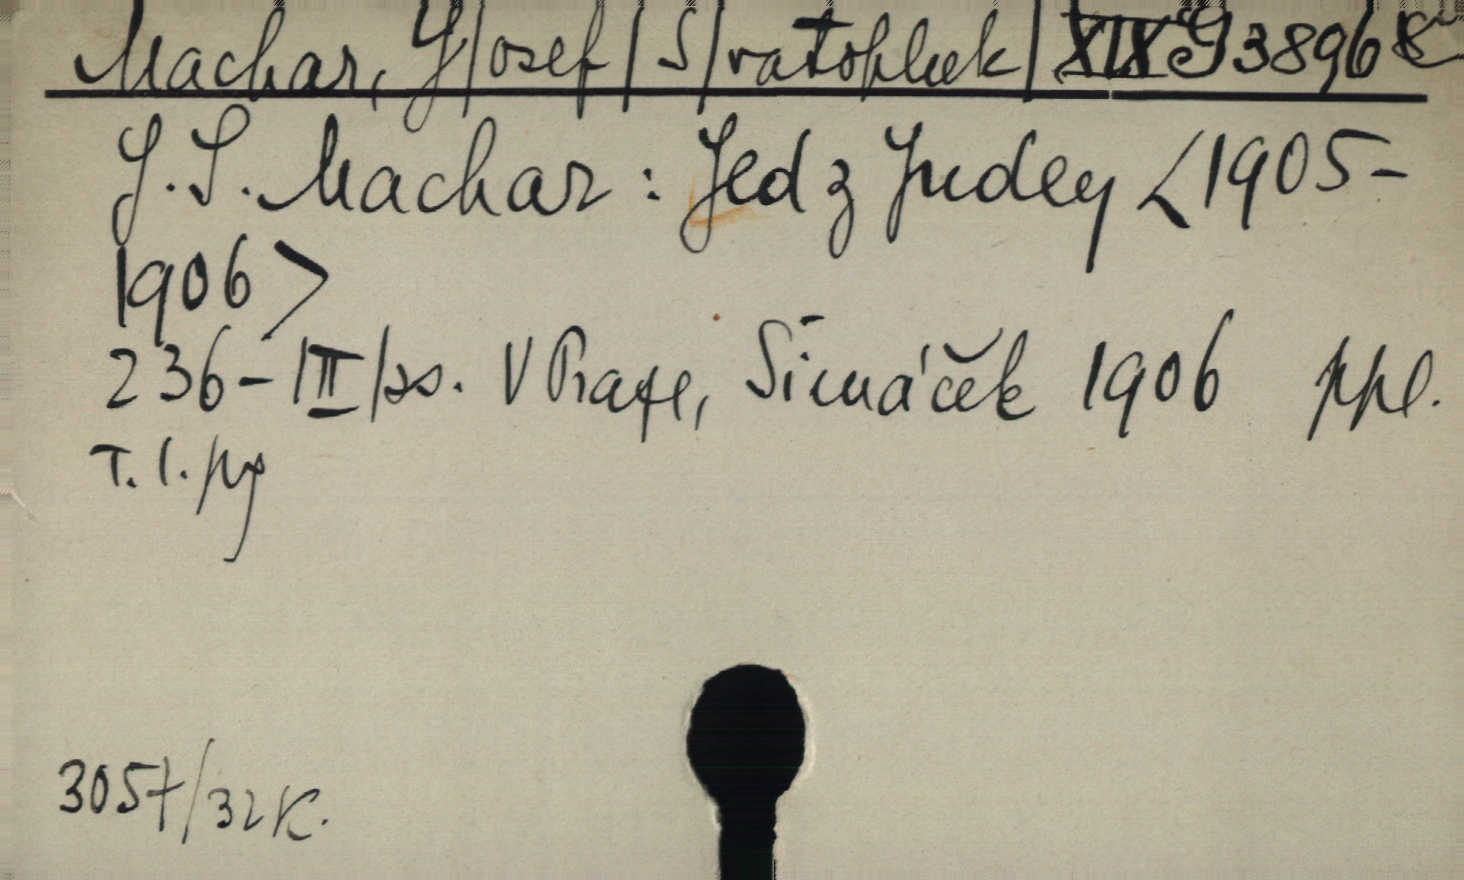 Machar, J/osef/ S/vatopluk/ XIX G 3896
J. S. Machar: Jed z Judey <1905-
1906>
236-/III/ss. V Praze, Šimáček 1906 ppl.
T. l. pg
3057/32 K.